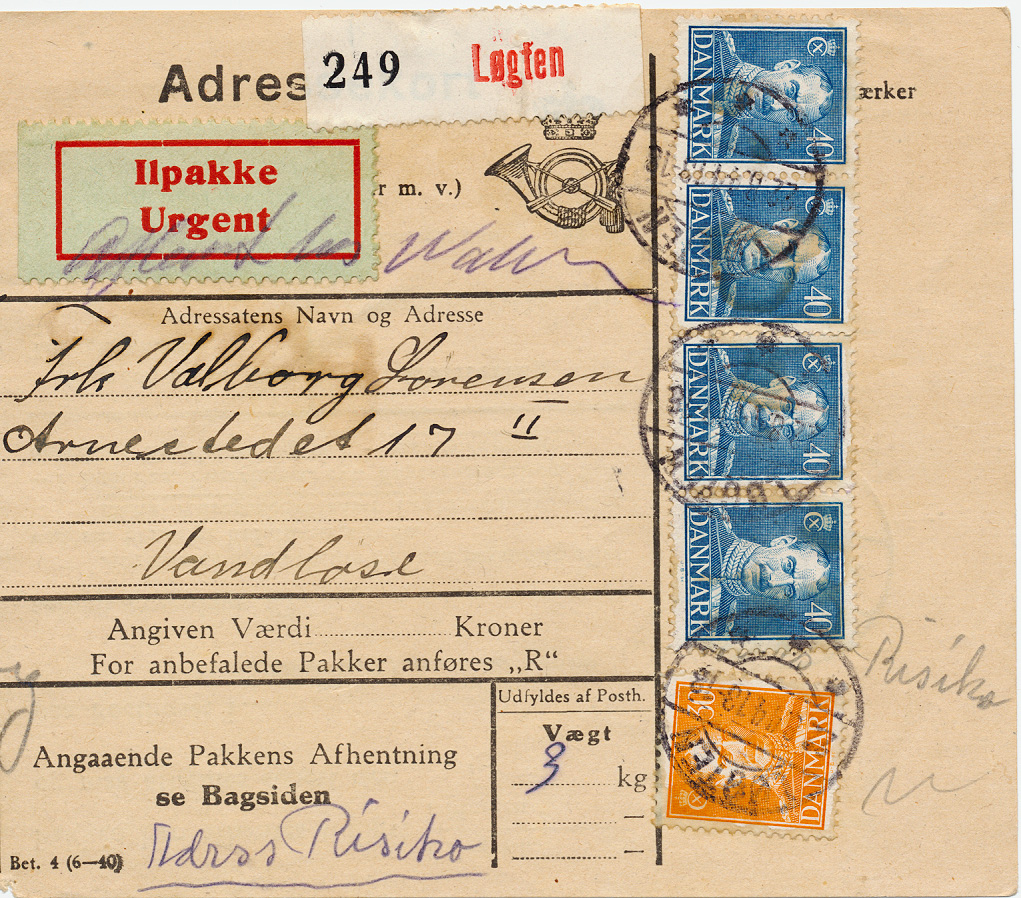 249 Løgten
Adres
ærker
Ilpakke
Urgent
r m. v.)
Adressatens Navn og Adresse
Frk Valborg Sorensen
Arnestedet 17 II
Vandløse
Angiven Værdi Kroner
For anbefalede Pakker anføres „R“
Udfyldes af Posth.
Vægt
3 kg
Angaaende Pakkens Afhentning
se Bagsiden
Bet. 4 (6—40)
Adrss Risiko
Risiko
DANMARK 40
DANMARK 40
DANMARK 40
DANMARK 40
DANMARK 30
LØGTEN